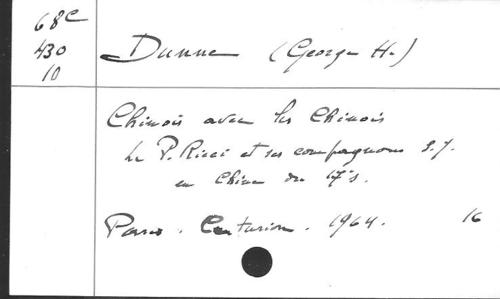 68C
430
10
Dunne (George H.)
Chinois avec les Chinois
Le P. Ricci et ses compagnons S.J.
en Chine du 17e s.
Paris. Centurion. 1964. 16